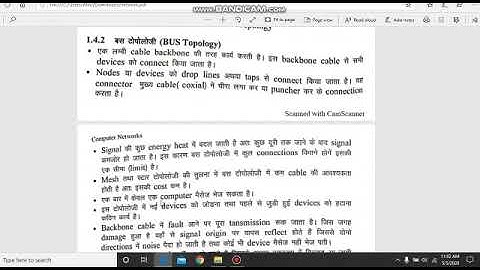 www.BANDICAM.com
Fit to page
Page view
Read aloud
Add notes
1.4.2 बस टोपोलोजी (BUS Topology)
• एक लम्बी cable backbone की तरह कार्य करती है। इस backbone cable से सभी
devices को connect किया जाता है।
• Nodes या devices को drop lines अथवा taps से connect किया जाता है। यह
connector मुख्य cable( coaxial) में चीरा लगा कर या puncher कर के connection
करता है।
Scanned with CamScanner
Computer Networks
• Signal की कुछ energy heat में बदल जाती है अतः कुछ दूरी तक जाने के बाद signal
कमजोर हो जाता है। इस कारण बस टोपोलोजी में कुल connections कितने होंगे इसकी
एक सीमा (limit) है।
• Mesh तथा स्टार टोपोलोजी की तुलना में बस टोपोलोजी में कम cable की आवश्यकता
होती है अतः इसकी cost कम है।
• एक बार में केवल एक computer मैसेज भेज सकता है।
• इस टोपोलोजी में नई devices को जोड़ना तथा पहले से जुड़ी हुई devices को हटाना
कठिन कार्य है।
• Backbone cable में fault आने पर पूरा transmission रूक जाता है। जिस जगह
damage हुआ है वहाँ से signal origin पर वापस reflect होते हैं जिससे दोनो
directions में noise पैदा हो जाती है तथा कोई भी device मैसेज नही भेज पाती।
Type here to search
11:02 AM
5/5/2020